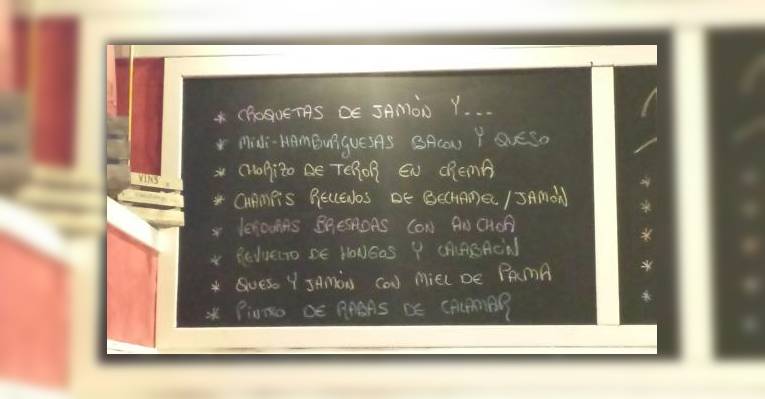 VINS
* CROQUETAS DE JAMÓN Y...
* MINI-HAMBURGUESAS BACON Y QUESO
* CHORIZO DE TEROR EN CREMA
* CHAMPIS RELLENOS DE BECHAMEL/JAMÓN
* VERDURAS BRESADAS CON ANCHOA
* REVUELTO DE HONGOS Y CALABACÍN
* QUESO Y JAMÓN CON MIEL DE PALMA
* PINTXO DE RABAS DE CALAMAR